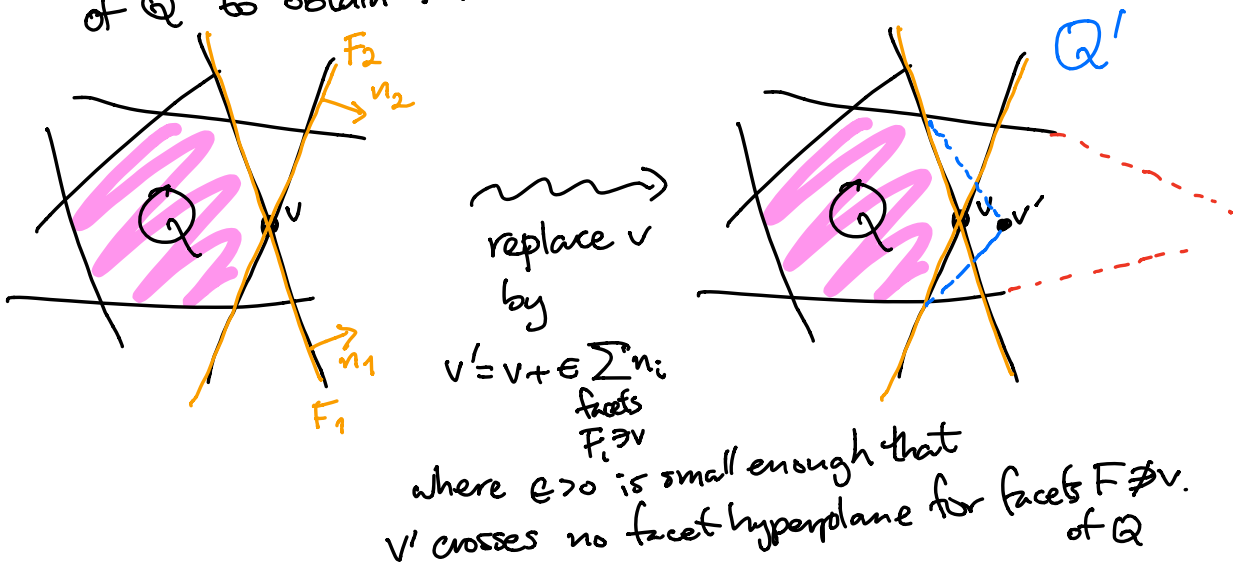 of Q to obtain
F₂
n₂
Q
v
n₁
F₁
replace v
by
v' = v + ϵ ∑ nᵢ
facets
Fᵢ ∋ v
Q'
Q
v
v'
where ϵ>0 is small enough that
v' crosses no facet hyperplane for facets F ∌ v.
of Q